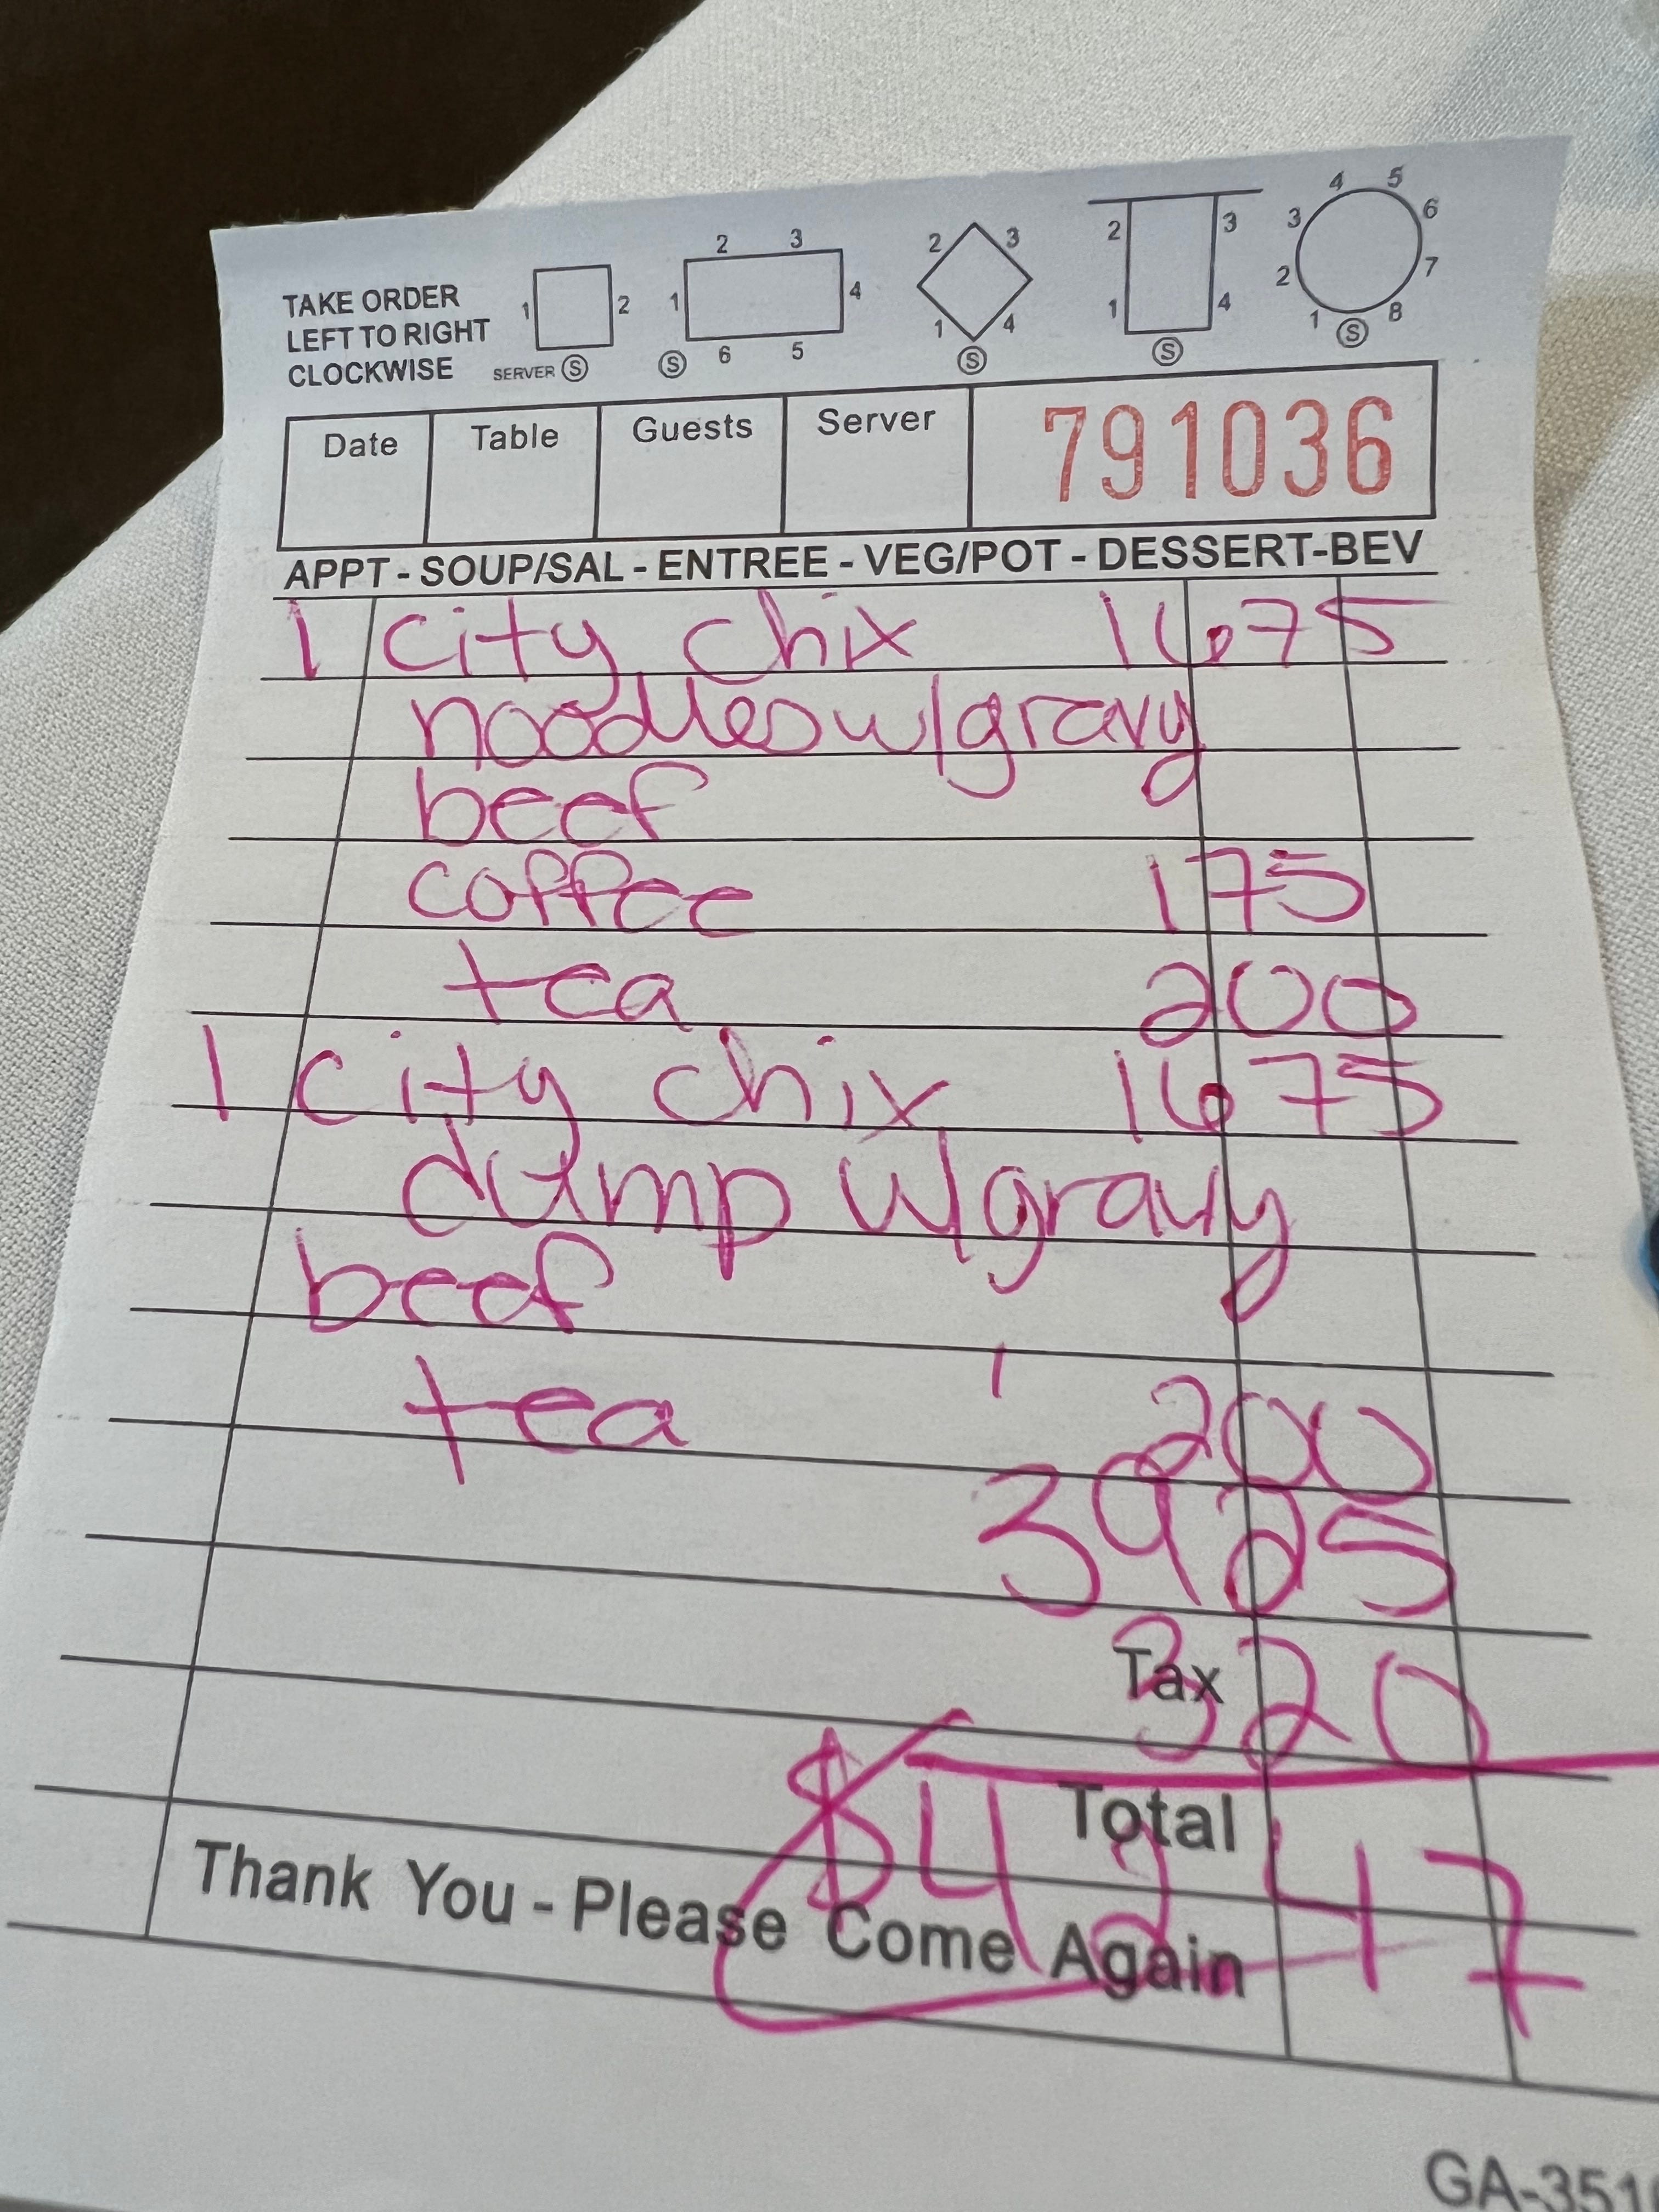 2 3 4 5
2 3 2 3 3 6
TAKE ORDER 1 2 1 4 2 7
LEFT TO RIGHT 1 4 1 4 1 8
CLOCKWISE SERVER S S 6 5 S S S
Date Table Guests Server 791036
APPT - SOUP/SAL - ENTREE - VEG/POT - DESSERT-BEV
1 city chix 16.75
noodles w/gravy
beef
coffee 175
tea 200
1 city chix 1675
dump w/gravy
beef
tea 200
3925
Tax 320
Total $42 47
Thank You - Please Come Again
GA-351